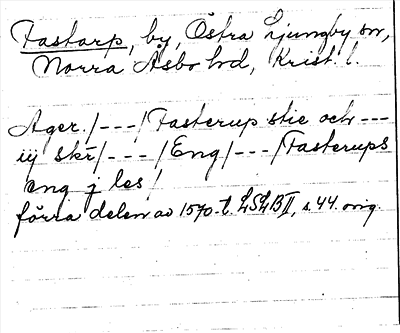 Fastarp, by, Östra Ljungby sn,
Norra Åsbo hd, Krist. l.
Ager /---/ Fasterup stie och ---
iij skr̃ /---/ Eng /---/ Fasterups
eng j les /
förra delen av 1570-t. LSLB II, s. 44. orig.